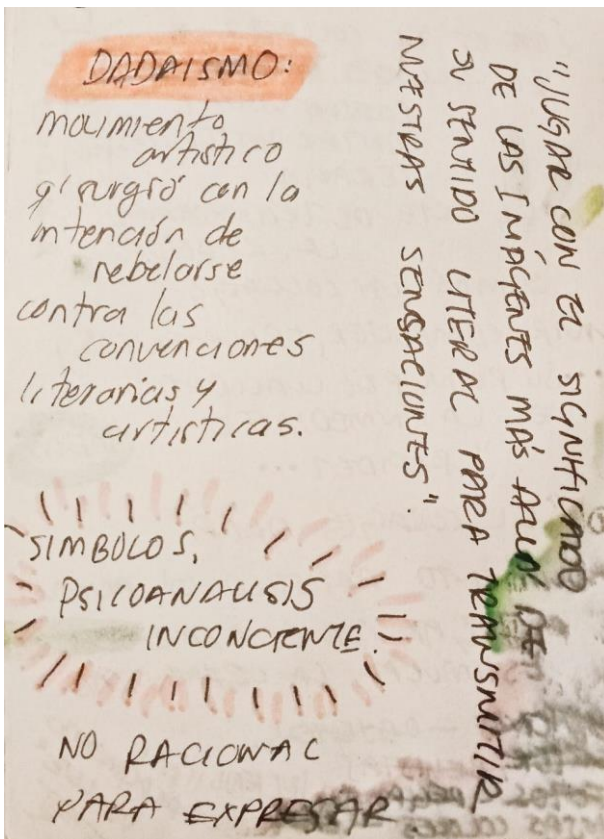 DADAISMO:
movimiento
artístico
q' surgió con la
intención de
rebelarse
contra las
convenciones
literarias y
artísticas.
SIMBOLOS,
PSICOANALISIS
INCONCIENTE.
NO RACIONAL
PARA EXPRESAR
"JUGAR CON EL SIGNIFICADO
DE LAS IMÁGENES MÁS ALLÁ DE
SU SENTIDO LITERAL PARA TRANSMITIR
NUESTRAS SENSACIONES".